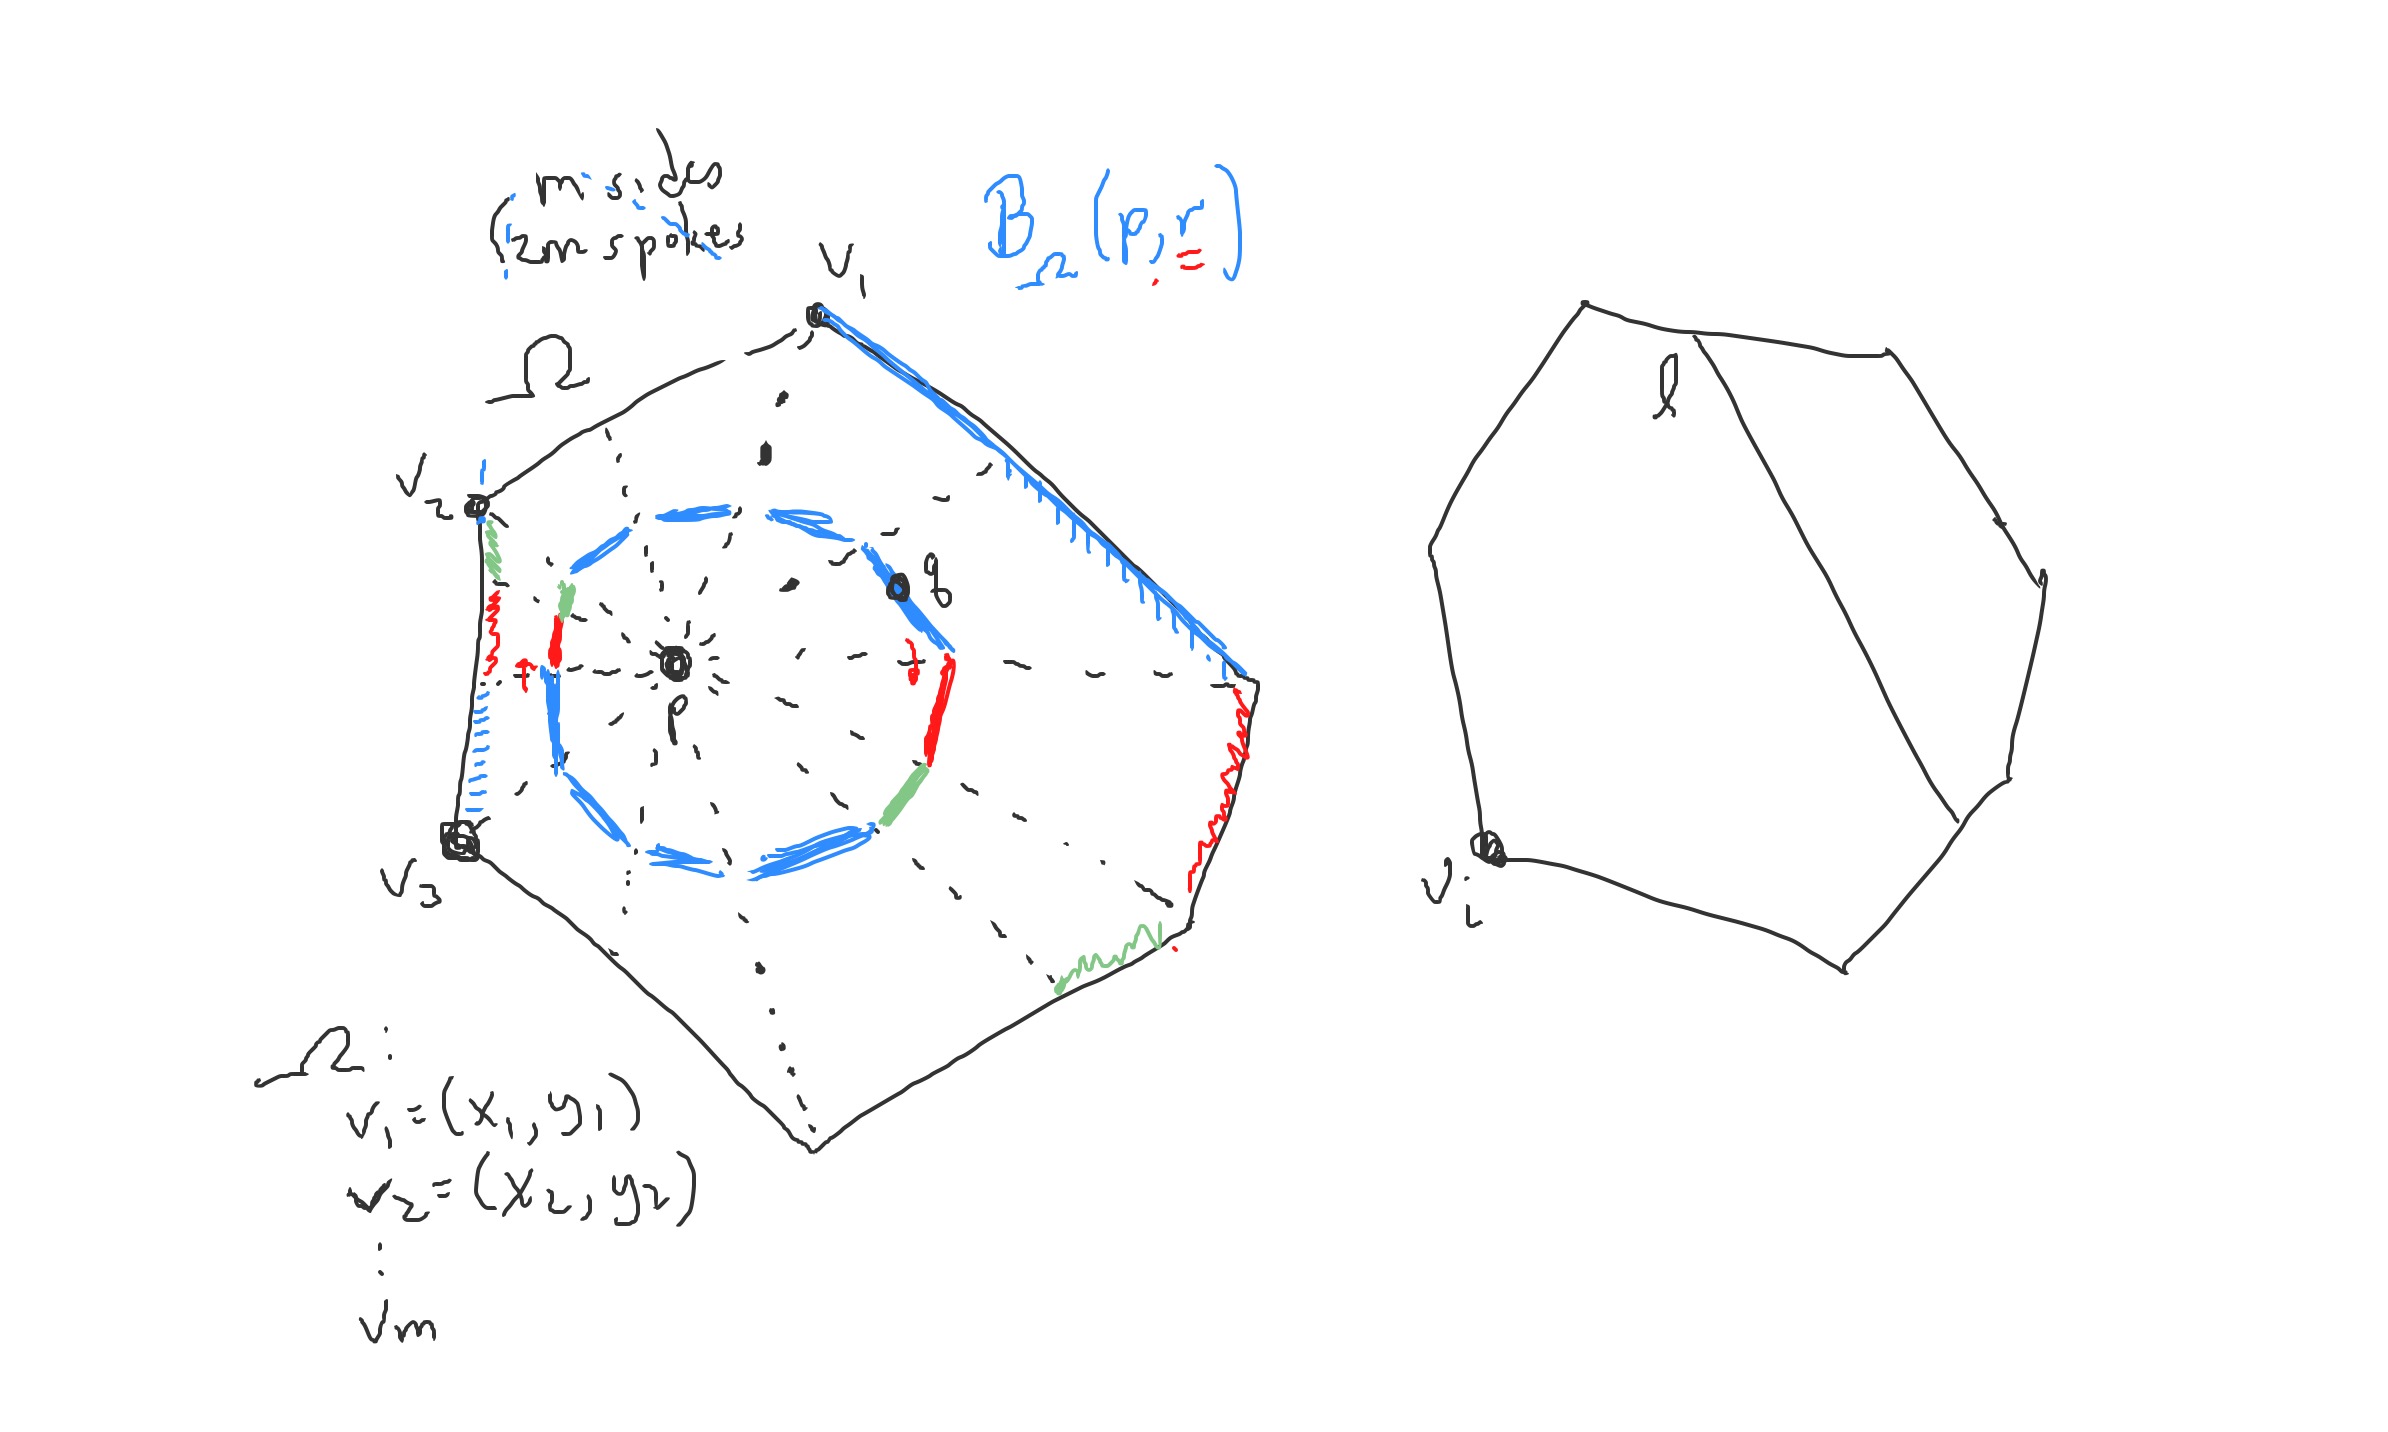 m sides
2m spokes
B_Ω(p,r)
v₁
Ω
v₂
q
p
v₃
Ω:
v₁=(x₁,y₁)
v₂=(x₂,y₂)
⋮
vm
l
vᵢ